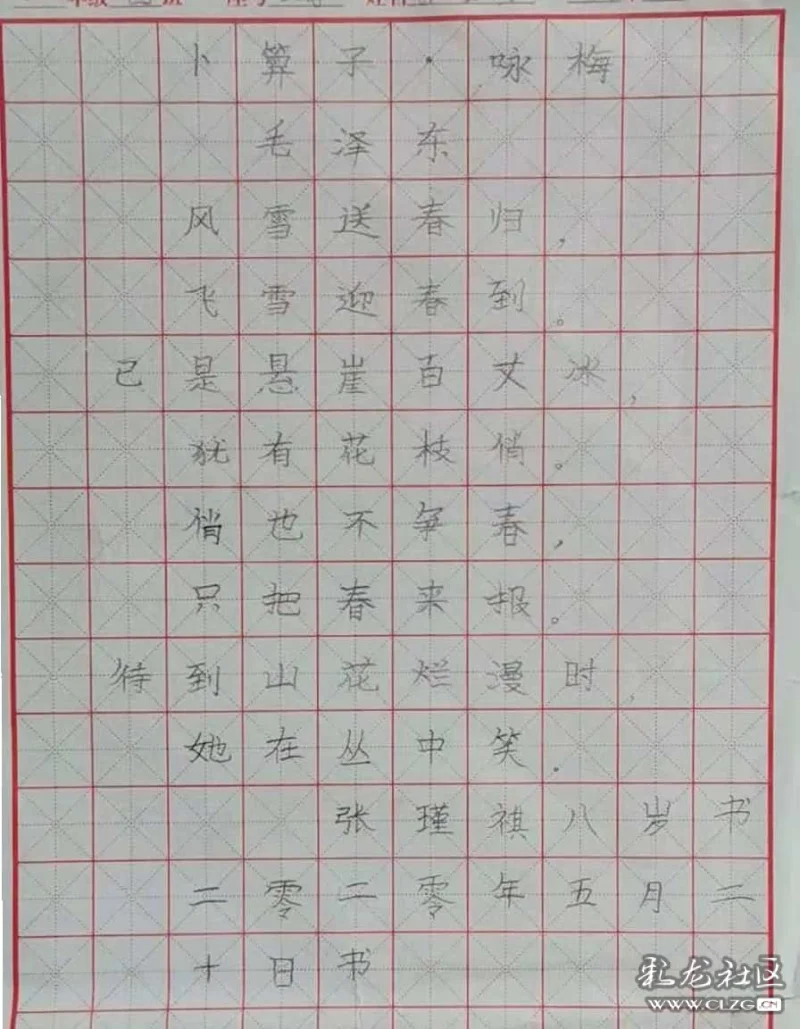 卜算子·咏梅
毛泽东
风雪送春归，
飞雪迎春到。
已是悬崖百丈冰，
犹有花枝俏。
俏也不争春，
只把春来报。
待到山花烂漫时，
她在丛中笑.
张瑾祺八岁书
二零二零年五月二
十日书
彩龙社区
WWW.CLZG.CN